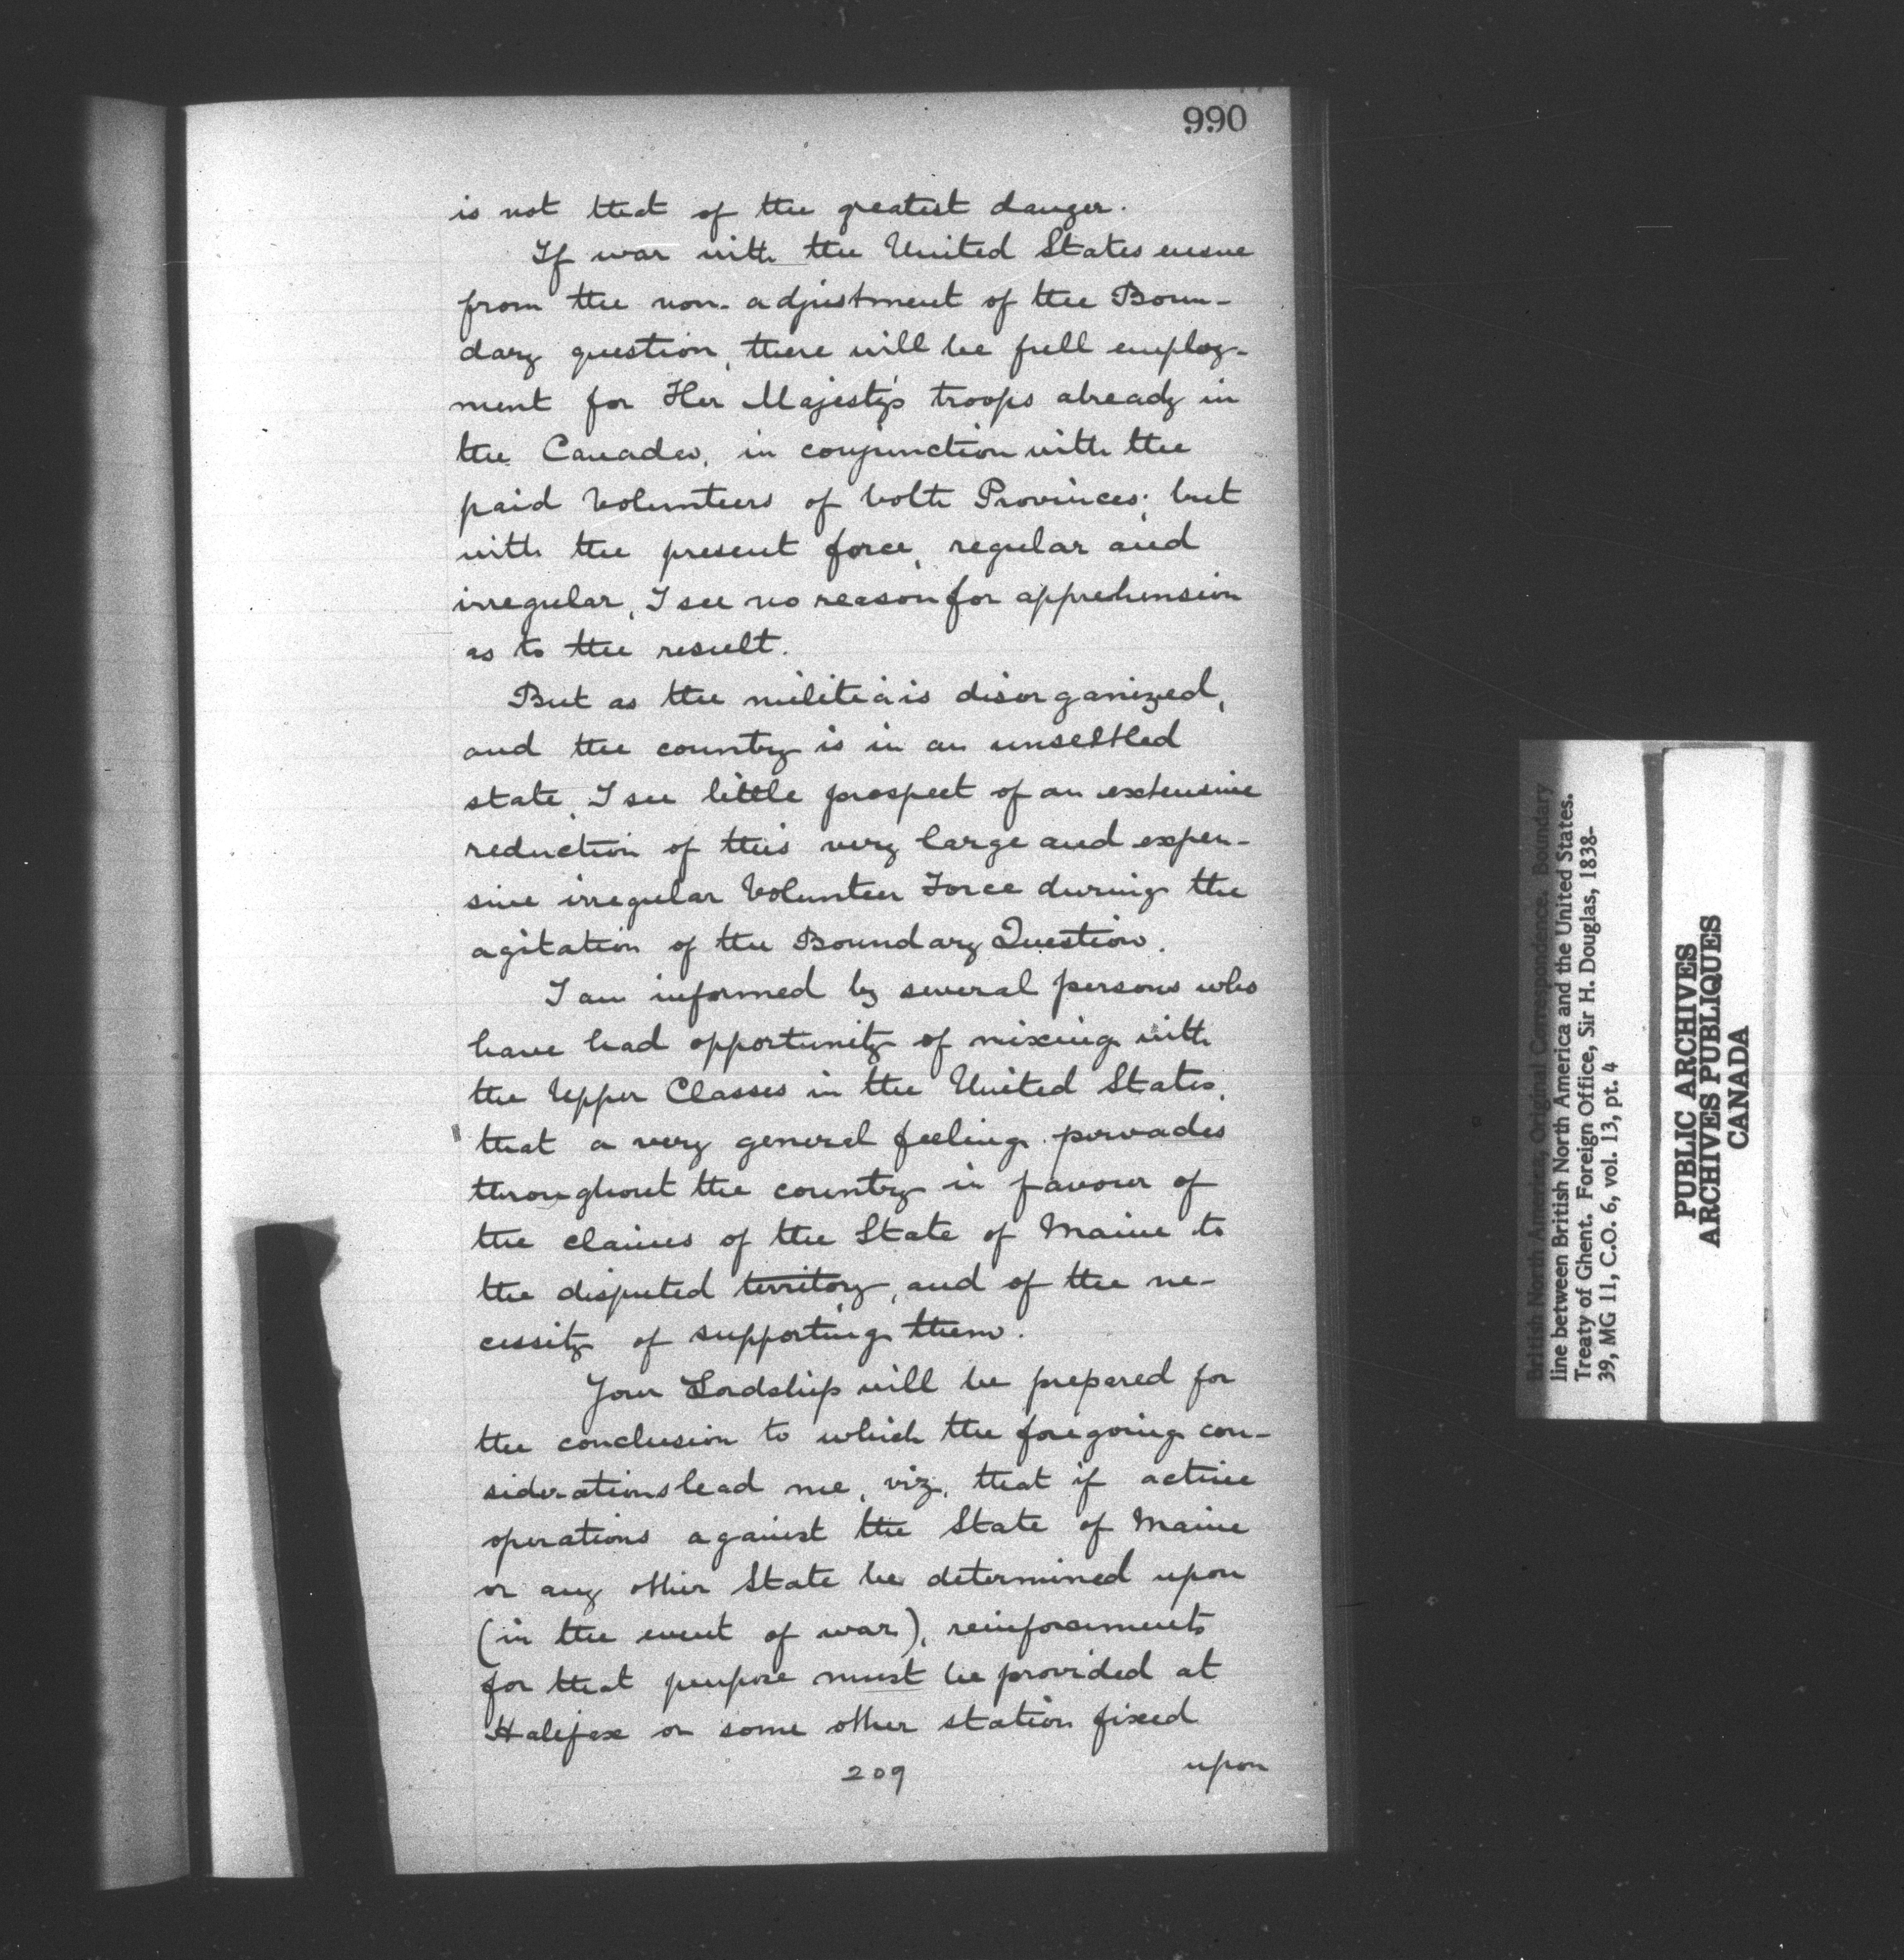 990
is not that of the greatest danger.
If war with the United States ensue
from the non-adjustment of the Boun-
dary question, there will be full employ-
ment for Her Majesty's troops already in
the Canadas, in conjunction with the
paid Volunteers of both Provinces; but
with the present force, regular and
irregular, I see no reason for apprehension
as to the result.
But as the militia is disorganized,
and the country is in an unsettled
state, I see little prospect of an extensive
reduction of this very large and expen-
sive irregular Volunteer Force during the
agitation of the Boundary Question.
I am informed by several persons who
have had opportunity of mixing with
the Upper Classes in the United States,
that a very general feeling pervades
throughout the country in favour of
the claims of the State of Maine to
the disputed territory, and of the ne-
cessity of supporting them.
Your Lordship will be prepared for
the conclusion to which the foregoing con-
siderations lead me, viz, that if active
operations against the State of Maine
or any other State be determined upon
(in the event of war), reinforcements
for that purpose must be provided at
Halifax or some other station fixed
209
upon
British North America, Original Correspondence. Boundary
line between British North America and the United States.
Treaty of Ghent. Foreign Office, Sir H. Douglas, 1838-
39, MG 11, C.O. 6, vol. 13, pt. 4
PUBLIC ARCHIVES
ARCHIVES PUBLIQUES
CANADA